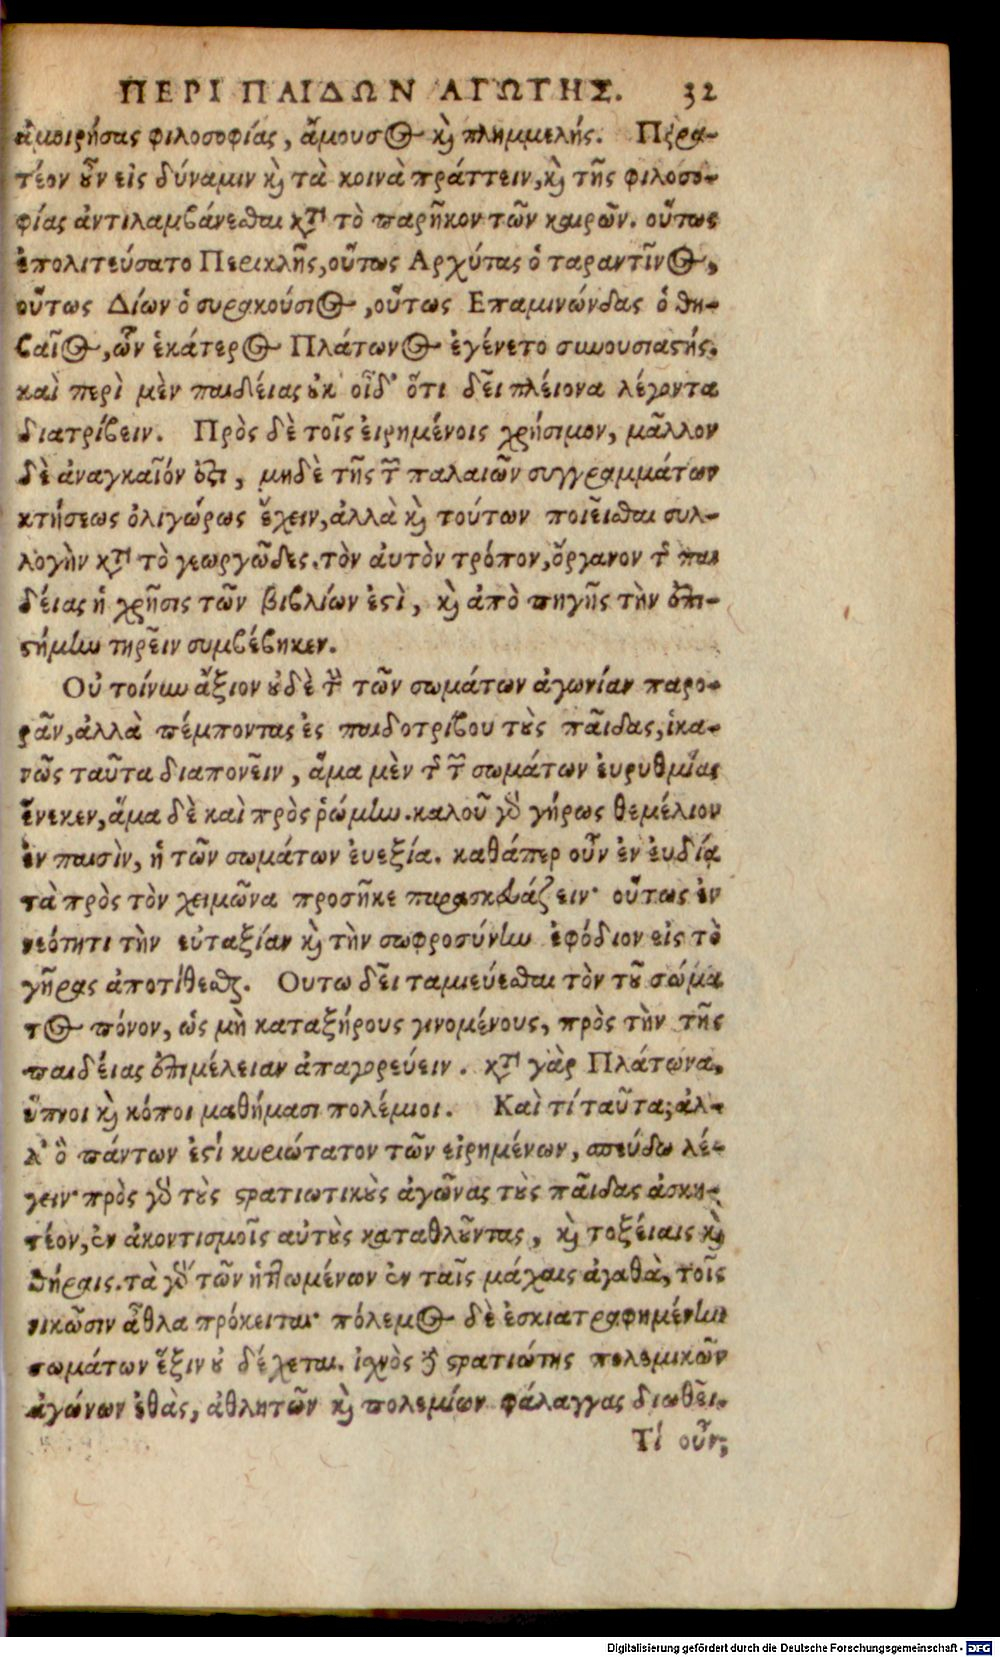 ΠΕΡΙ ΠΑΙΔΩΝ ΑΓΩΓΗΣ. 32
ἀμοιρήσας φιλοσοφίας, ἄμουσος καὶ πλημμελής. Πειρα-
τέον οὖν εἰς δύναμιν καὶ τὰ κοινὰ πράττειν, καὶ τῆς φιλοσο-
φίας ἀντιλαμβάνεσθαι κατὰ τὸ παρῆκον τῶν καιρῶν. οὕτως
ἐπολιτεύσατο Περικλῆς, οὕτως Αρχύτας ὁ ταραντῖνος,
οὕτως Δίων ὁ συρακούσιος, οὕτως Επαμινώνδας ὁ θη-
βαῖος, ὧν ἑκάτερος Πλάτωνος ἐγένετο συνουσιαστής.
καὶ περὶ μὲν παιδείας οὐκ οἶδ' ὅτι δεῖ πλείονα λέγοντα
διατρίβειν. Πρὸς δὲ τοῖς εἰρημένοις χρήσιμον, μᾶλλον
δὲ ἀναγκαῖόν ἐστι, μηδὲ τῆς τῶν παλαιῶν συγγραμμάτων
κτήσεως ὀλιγώρως ἔχειν, ἀλλὰ καὶ τούτων ποιεῖσθαι συλ-
λογὴν κατὰ τὸ γεωργῶδες. τὸν αὐτὸν τρόπον, ὄργανον τῆς παι
δείας ἡ χρῆσις τῶν βιβλίων ἐστὶ, καὶ ἀπὸ πηγῆς τὴν ἐπι-
στήμην τηρεῖν συμβέβηκεν.
Οὐ τοίνυν ἄξιον οὐδὲ τὴν τῶν σωμάτων ἀγωνίαν παρο-
ρᾶν, ἀλλὰ πέμποντας ἐς παιδοτρίβου τοὺς παῖδας, ἱκα-
νῶς ταῦτα διαπονεῖν, ἅμα μὲν τῆς τῶν σωμάτων εὐρυθμίας
ἕνεκεν, ἅμα δὲ καὶ πρὸς ῥώμην. καλοῦ γὰρ γήρως θεμέλιον
ἐν παισὶν, ἡ τῶν σωμάτων εὐεξία. καθάπερ οὖν ἐν εὐδίᾳ
τὰ πρὸς τὸν χειμῶνα προσῆκε παρασκευάζειν· οὕτως ἐν
νεότητι τὴν εὐταξίαν καὶ τὴν σωφροσύνην ἐφόδιον εἰς τὸ
γῆρας ἀποτίθεσθαι. Ουτω δεῖ ταμιεύεσθαι τὸν τοῦ σώμα
τος πόνον, ὡς μὴ καταξήρους γινομένους, πρὸς τὴν τῆς
παιδείας ἐπιμέλειαν ἀπαγορεύειν. κατὰ γὰρ Πλάτωνα,
ὕπνοι καὶ κόποι μαθήμασι πολέμιοι. Καὶ τί ταῦτα; ἀλ-
λ' ὃ πάντων ἐστί κυριώτατον τῶν εἰρημένων, σπεύδω λέ-
γειν· πρὸς γὰρ τοὺς στρατιωτικοὺς ἀγῶνας τοὺς παῖδας ἀσκη-
τέον, ἐν ἀκοντισμοῖς αὐτοὺς καταθλοῦντας, καὶ τοξείαις καὶ
θήραις. τὰ γὰρ τῶν ἡττωμένων ἐν ταῖς μάχαις ἀγαθὰ, τοῖς
νικῶσιν ἆθλα πρόκειται· πόλεμος δὲ ἐσκιατραφημένην
σωμάτων ἕξιν οὐ δέχεται. ἰχνὸς δὲ στρατιώτης πολεμικῶν
ἀγώνων ἐθὰς, ἀθλητῶν καὶ πολεμίων φάλαγγας διωθεῖ.
Τί οὖν;
Digitalisierung gefördert durch die Deutsche Forschungsgemeinschaft - DFG